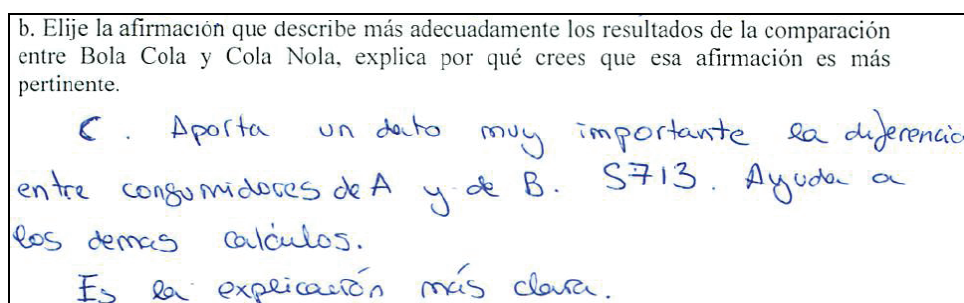 b. Elije la afirmación que describe más adecuadamente los resultados de la comparación
entre Bola Cola y Cola Nola, explica por qué crees que esa afirmación es más
pertinente.
C. Aporta un dato muy importante la diferencia
entre consumidores de A y de B. 5713. Ayuda a
los demas calculos.
Es la explicación más clara.